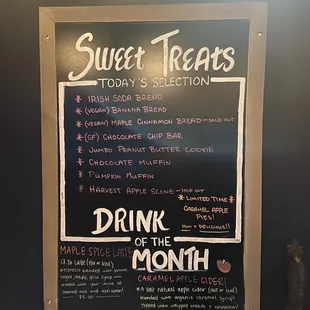 Sweet Treats
TODAY'S SELECTION
* IRISH SODA BREAD
* (VEGAN) BANANA BREAD
* (VEGAN) MAPLE CINNAMON BREAD - SOLD OUT
* (GF) CHOCOLATE CHIP BAR
* JUMBO PEANUT BUTTER COOKIE
* CHOCOLATE MUFFIN
* PUMPKIN MUFFIN
* HARVEST APPLE SCONE - SOLD OUT
* LIMITED TIME *
CARAMEL APPLE
PIES!
DELICIOUS!!
DRINK
OF THE
MONTH
MAPLE SPICE LATTE
(hot or iced)
espresso blended with brown
sugar, maple spice syrup -
with your choice of
steamed milk
CARAMEL APPLE CIDER
natural apple cider (hot or iced)
blended with organic caramel syrup
topped with whipped cream +